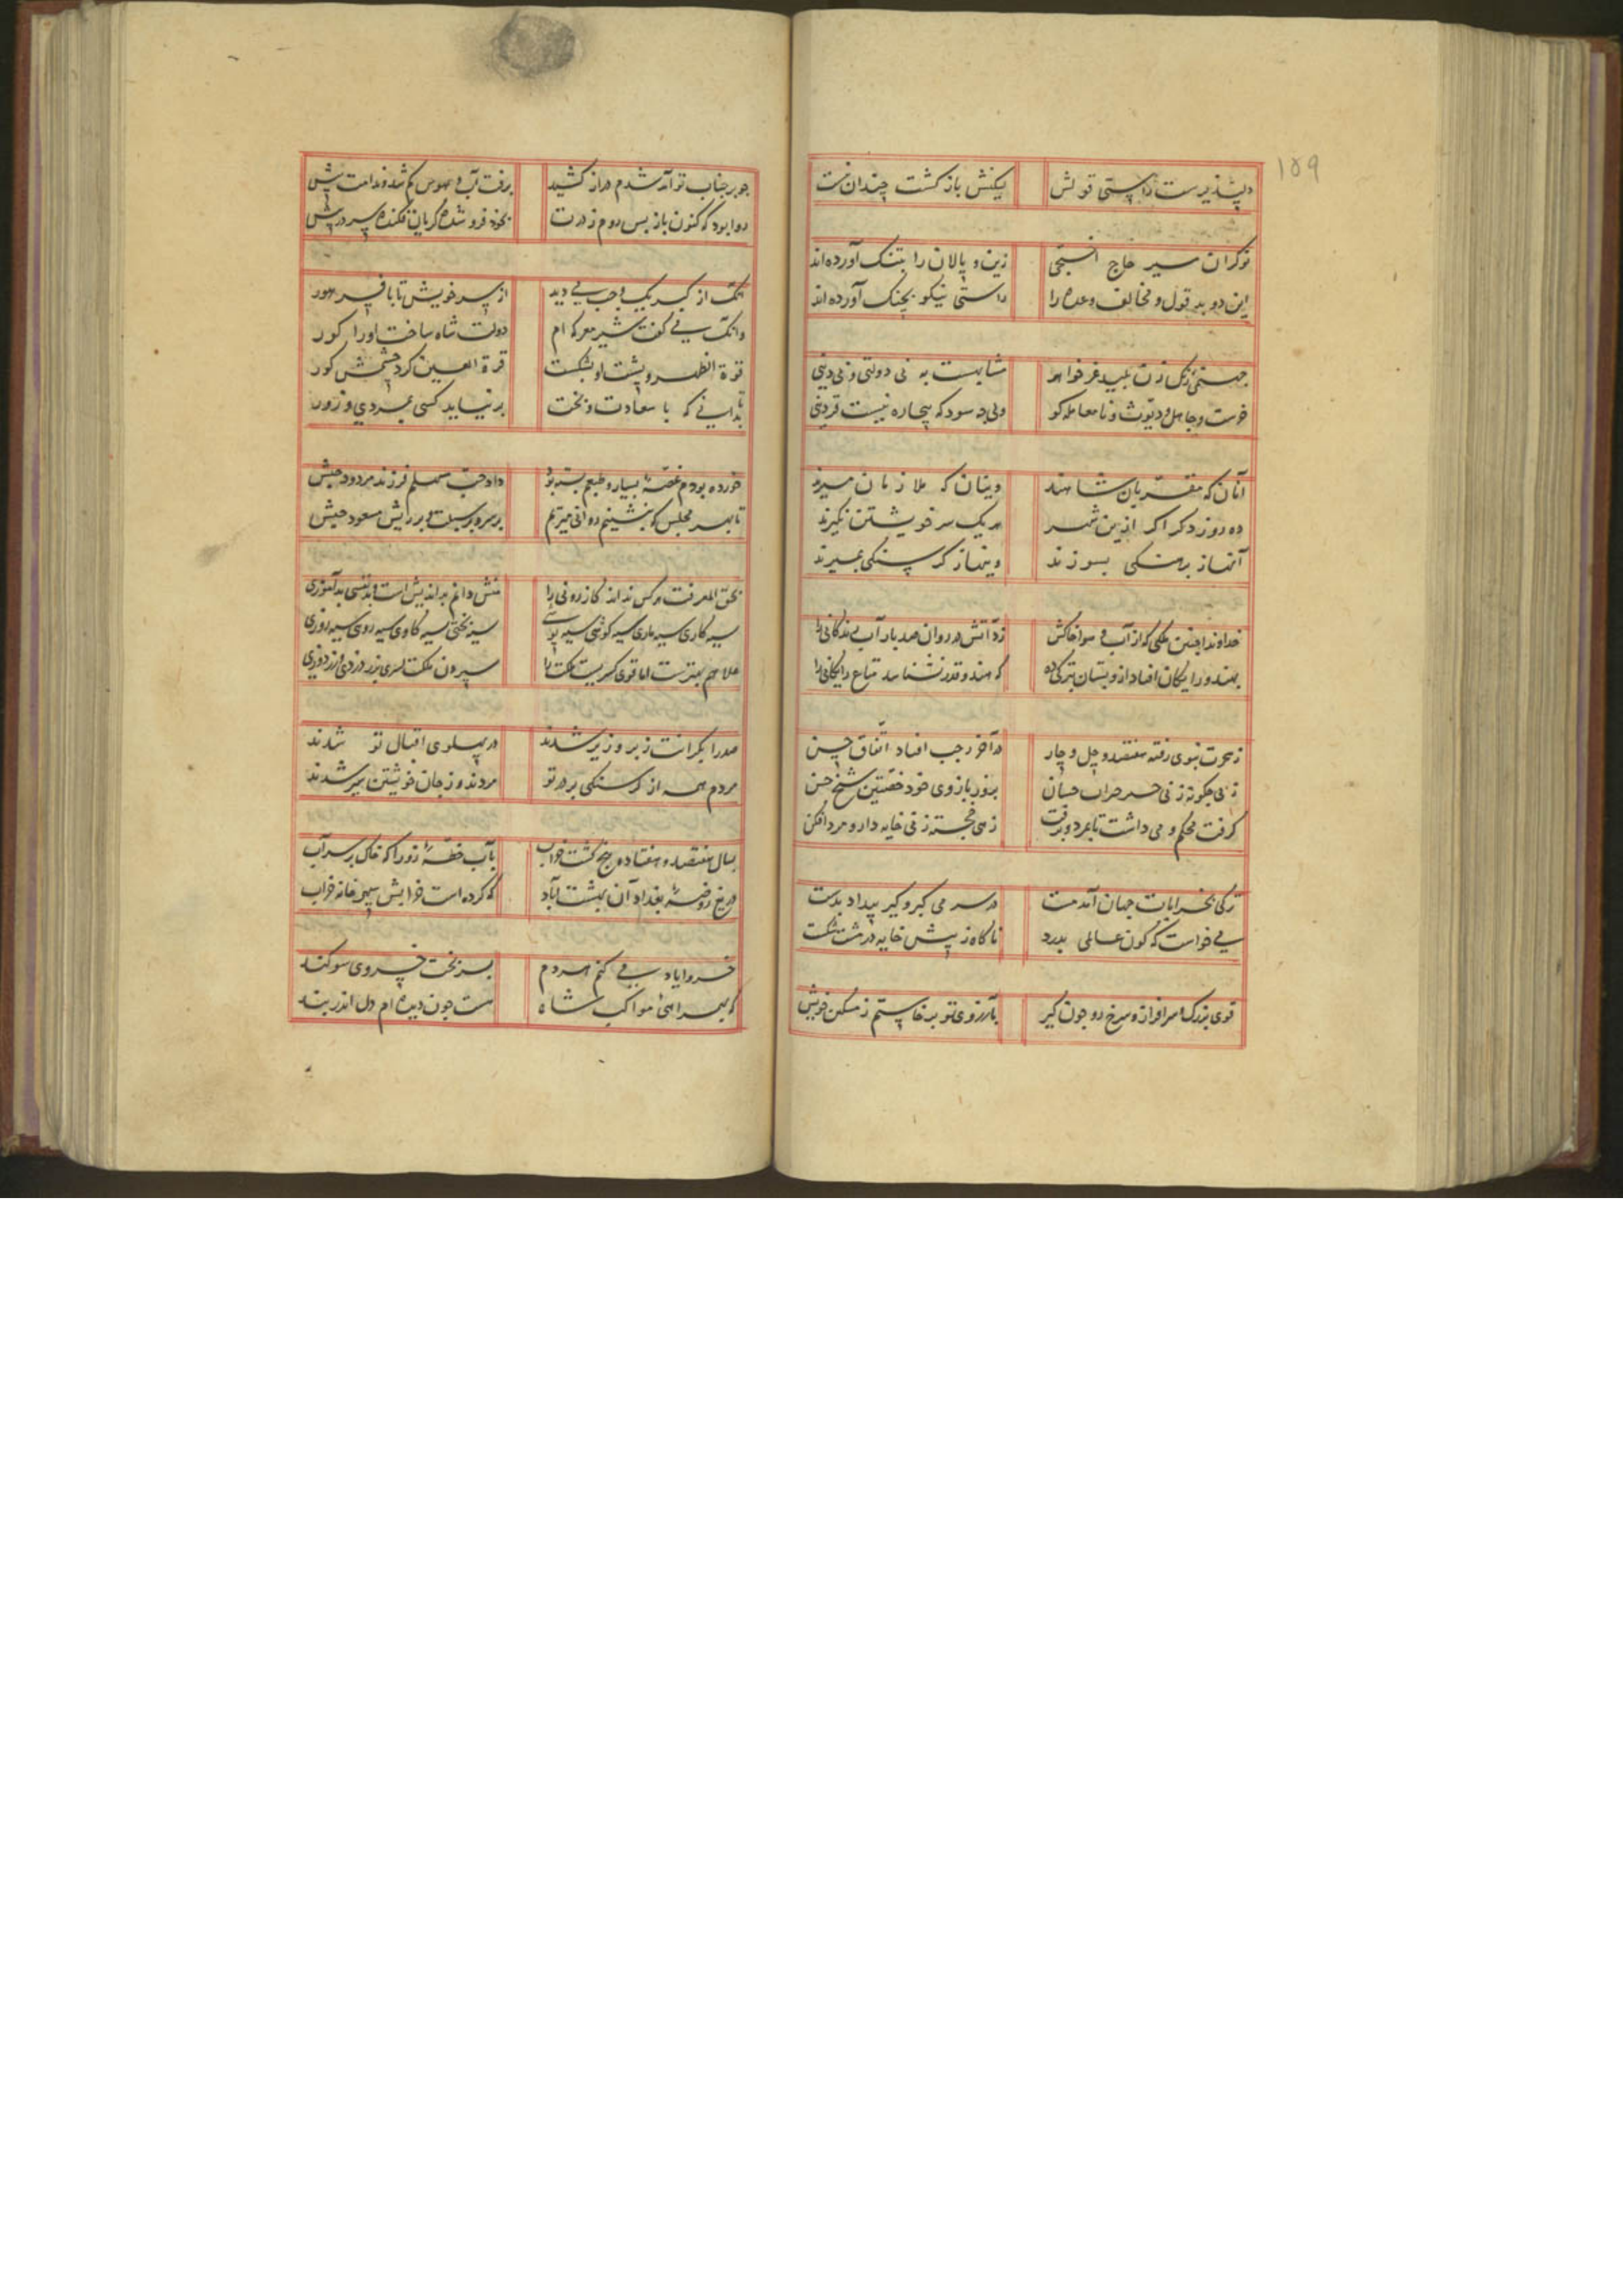 ۱۵۹
دلپذیرست راستی قولش یکنش باز کشت چندان نست
نوکران میر حاج زین و پالان را بتنک آورده اند
این دو بد قول و مخالف وعده را راستی نیکو بچنک آورده اند
مشابهست به بی دولتی و بی دینی
خرست و جاهل و دیوث و نامعامله کو ولی چه سود که بیچاره نیست قزوینی
آنان که مقربان شاهند وینان که ملازمان میرند
ده روز دکر اکر ازین شهر هر یک سر خویشتن نکیرند
آنها ز برهنکی بسوزند وینها ز کرسنکی بمیرند
خداوندا چنین ملکی که از آب و هوا خاکش زد آتش در روان صد بار آب زندکانی را
بهندو رایکان افتاد ازو بستان بترکی ده که هندو قدر نشناسد متاع رایکانی را
ز هجرت نبوی رفته هفتصد و چل و چار در آخر رجب افتاد اتفاق حسن
زنی چکونه زنی خیر خیرات حسان بزور بازوی خود خصیتین شیخ حسن
کرفت محکم و می داشت تا بمرد و برفت زهی خجسته زنی خایه دار و مرد افکن
ترکی بخرابات جهان آمد مست در سر می کبر و کیر بیداد بدست
می خواست که کون عالمی بدرد ناکاه ز پیش خایه در مشت شکست
قوی بزرک و سرافراز و سرخ رو چون کیر بآرزوی تو برخاستم ز مسکن خویش
چو بر جناب تو آمد شدم دراز کشید برفت آب و هوس کم شد و ندامت بیش
روا بود که کنون باز پس روم ز درت بخود فرو شده کریان فکنده سر در پیش
انک از کبر یک وجب می دید از سر خویش تا بافسر هور
وانک می کفت شیر معرکه ام دولت شاه ساخت او را کور
قوة الظهر و پشت او بشکست قرة العین کرد چشمش کور
تا بدانی که با سعادت و بخت بر نیاید کسی بمردی و زور
خورده بودم غصهٔ بسیار و طبعم بسته بود داد حب مسهلم فرزند مردود حبش
تا بهر مجلس که بنشینم روانی میرنم بر سر و بر سبلت و بر ریش مسعود حبش
بحق المعرفت هر کس نداند کازرونی را منش دانم بد اندیش است و بد نفسی بد آموزی
سیه کاری سیه ماری سیه کوشی سیه بختی سیه کاوی سیه روی سیه روزی
صدرا بکرانت زبر و زیر شدند در پهلوی اقبال تو شدند
مردم همه از کرسنکی بر در تو مردند و ز جان خویشتن سیر شدند
بسال هفتصد و هفتاد و پنج کشت خراب بآب خطهٔ زورا که خاک بر سر آب
دریغ روضهٔ بغداد آن بهشت آباد که کرده است خرابش سپهر خانه خراب
خسروا یاد می کنم هر دم بسر بخت خسروی سوکند
که بهمراهی مواکب شاه هست چون دیده ام دل اندر بند